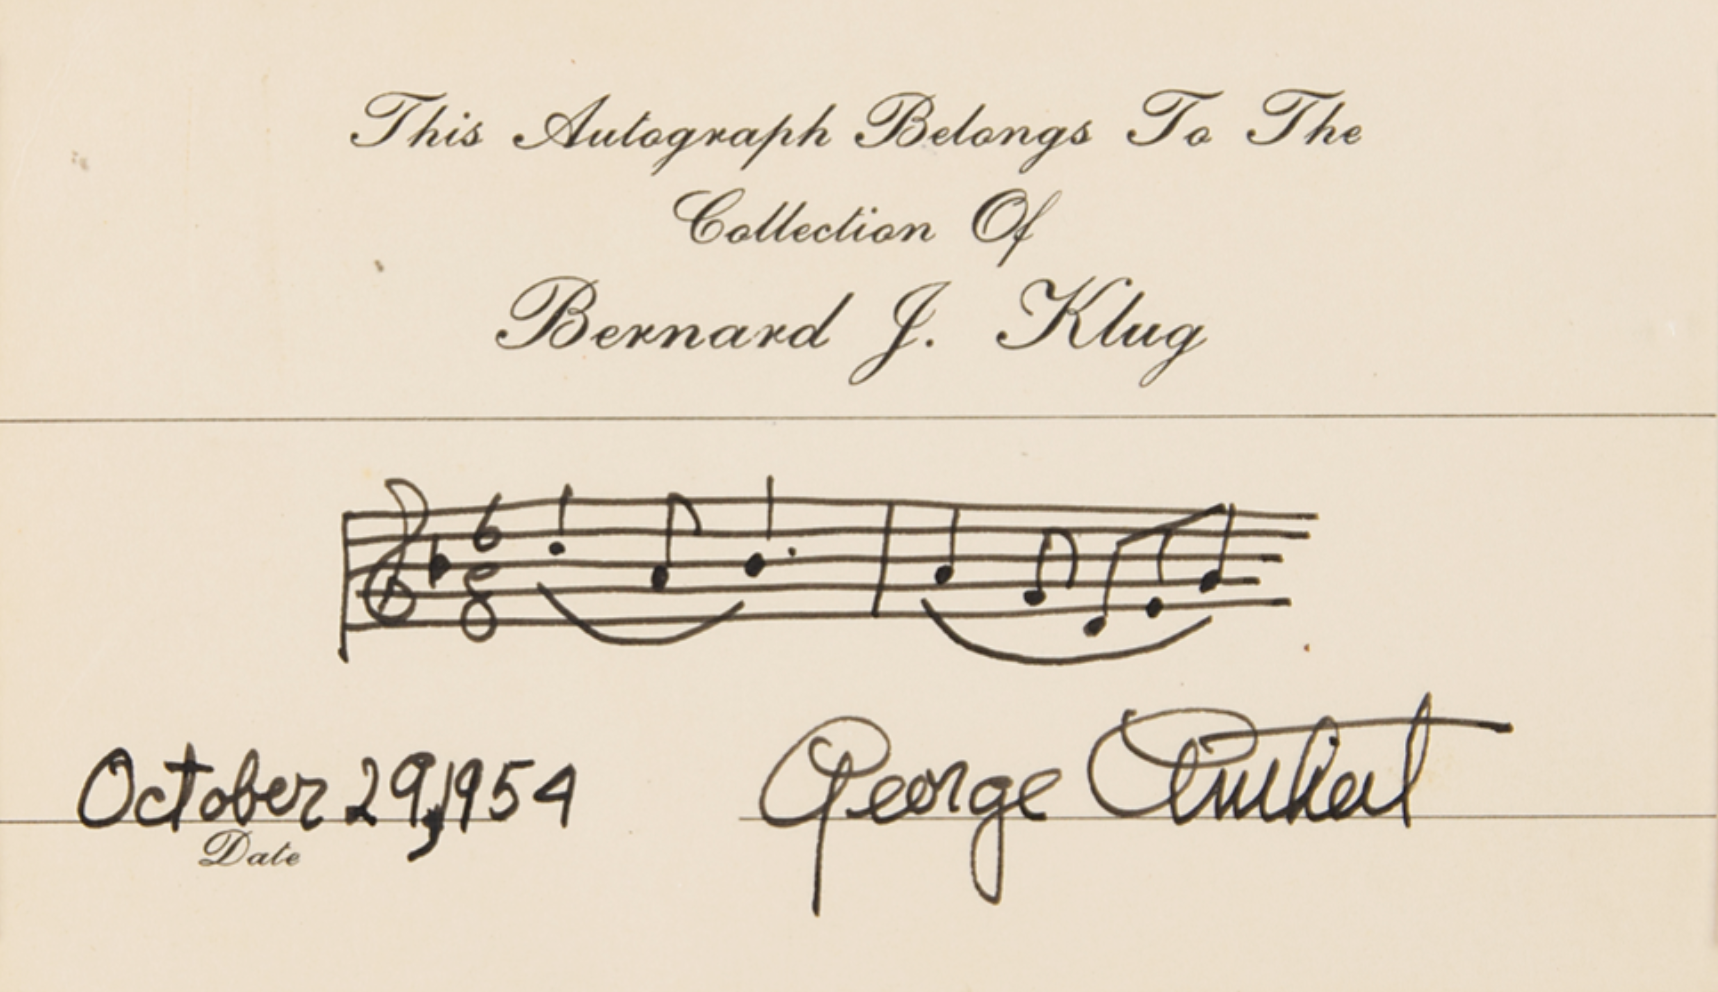 This Autograph Belongs To The
Collection Of
Bernard J. Klug
6
8
October 29, 1954
George Antheil
Date